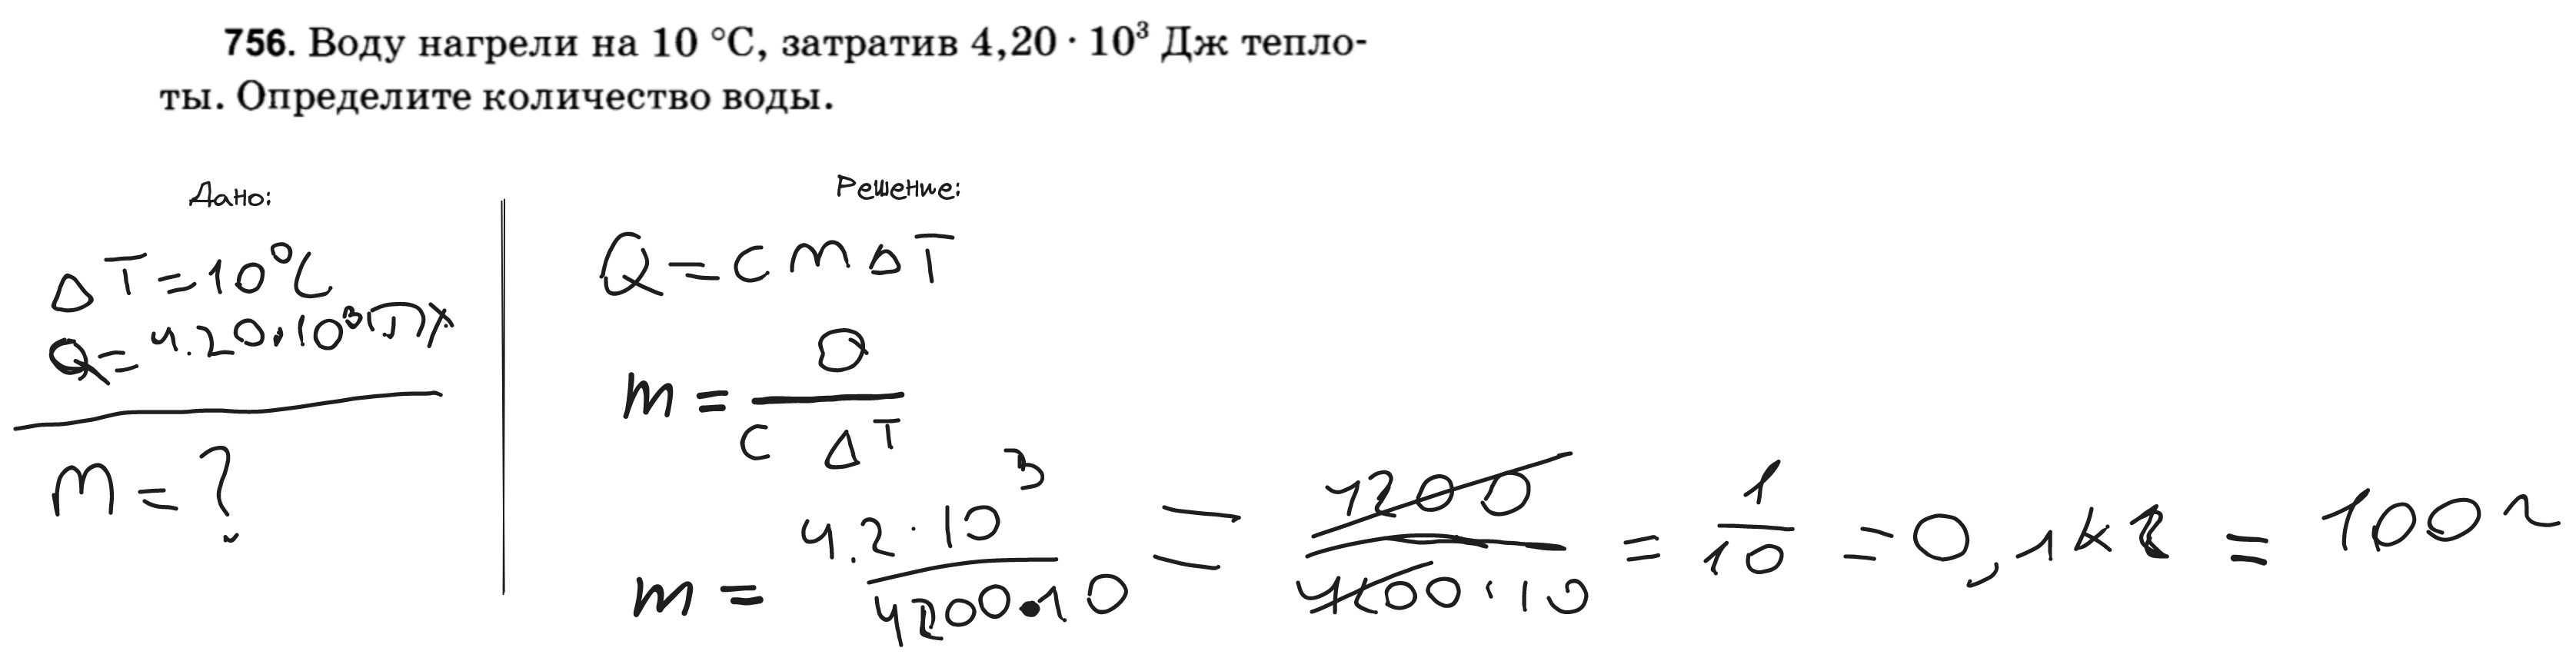 756. Воду нагрели на 10 °С, затратив 4,20 · 10³ Дж тепло-
ты. Определите количество воды.
Дано:
ΔT=10°C
Q=4.20·10³Дж
m=?
Решение:
Q=cmΔT
m = Q / c ΔT
m = 4.2·10³ / 4200·10 = 4200 / 4200·10 = 1/10 = 0,1кг = 100г